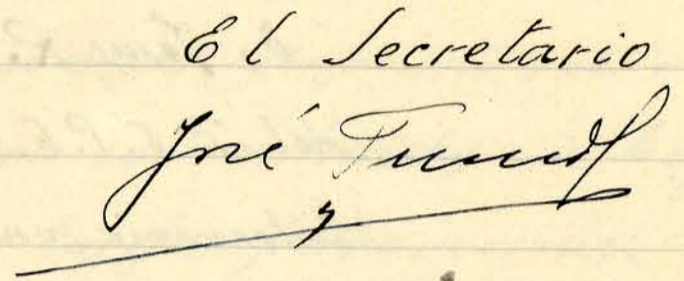 El Secretario
José